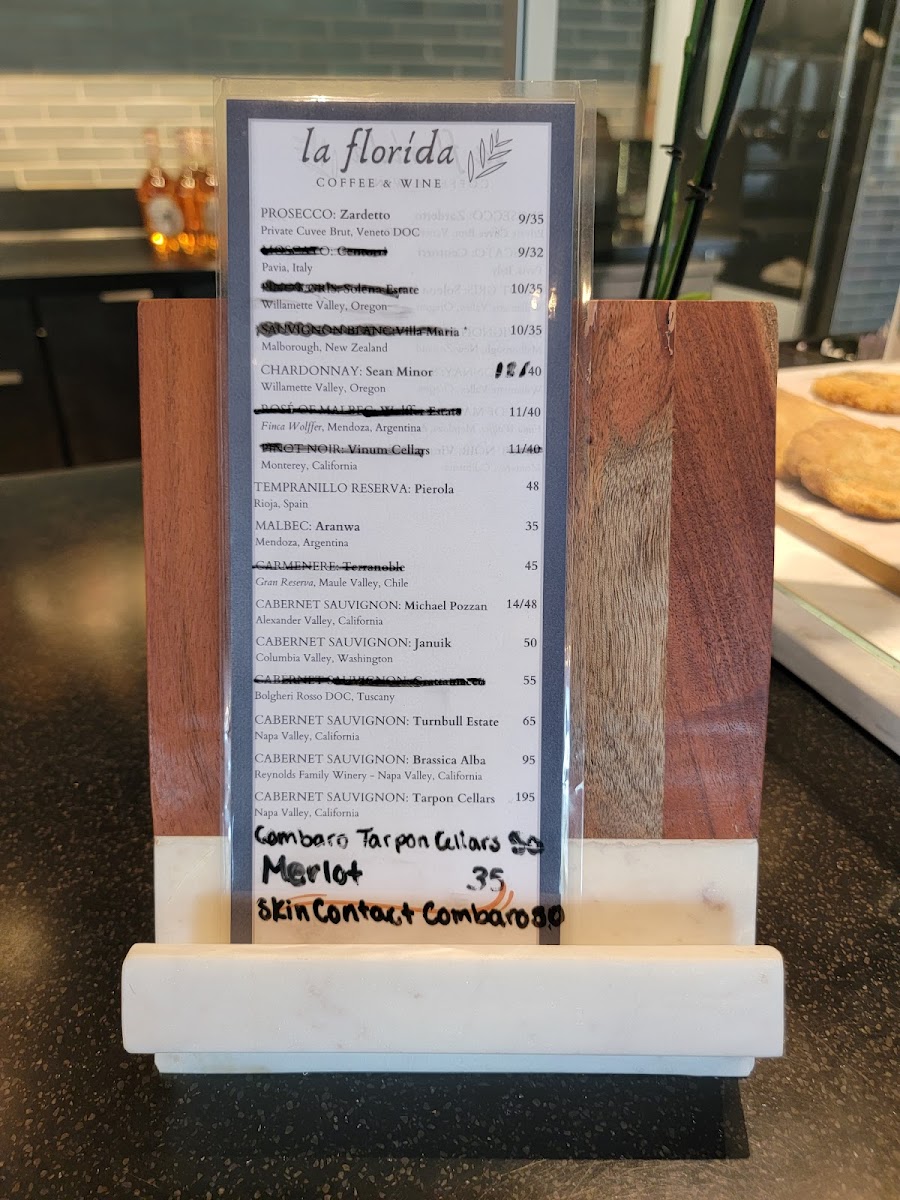 la florída
COFFEE & WINE
PROSECCO: Zardetto 9/35
Private Cuvee Brut, Veneto DOC
MOSCATO: Centorri 9/32
Pavia, Italy
GRIS: Solena Estate 10/35
Willamette Valley, Oregon
SAUVIGNON BLANC: Villa Maria 10/35
Malborough, New Zealand
CHARDONNAY: Sean Minor /40
Willamette Valley, Oregon
ROSÉ OF MALBEC: Wolffer Estate 11/40
Finca Wolffer, Mendoza, Argentina
PINOT NOIR: Vinum Cellars 11/40
Monterey, California
TEMPRANILLO RESERVA: Pierola 48
Rioja, Spain
MALBEC: Aranwa 35
Mendoza, Argentina
CARMENERE: Terranoble 45
Gran Reserva, Maule Valley, Chile
CABERNET SAUVIGNON: Michael Pozzan 14/48
Alexander Valley, California
CABERNET SAUVIGNON: Januik 50
Columbia Valley, Washington
CABERNET SAUVIGNON: 55
Bolgheri Rosso DOC, Tuscany
CABERNET SAUVIGNON: Turnbull Estate 65
Napa Valley, California
CABERNET SAUVIGNON: Brassica Alba 95
Reynolds Family Winery - Napa Valley, California
CABERNET SAUVIGNON: Tarpon Cellars 195
Napa Valley, California
Combaro Tarpon Cellars
Merlot 35
Skin Contact Combaro 80